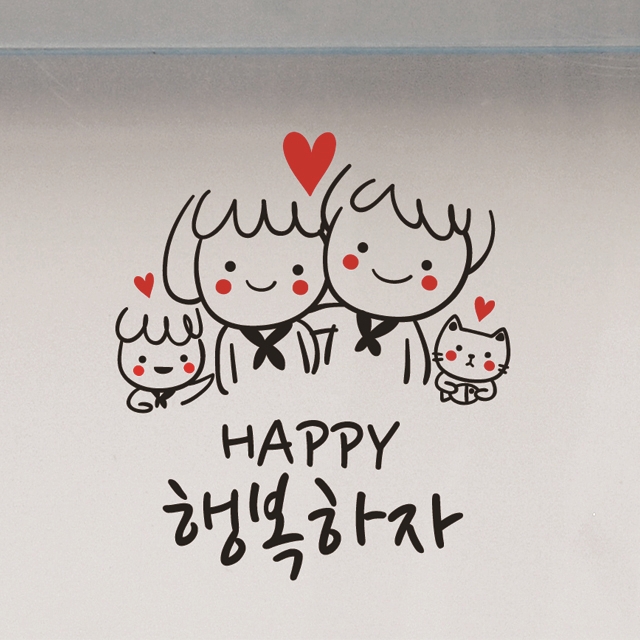 HAPPY
행복하자